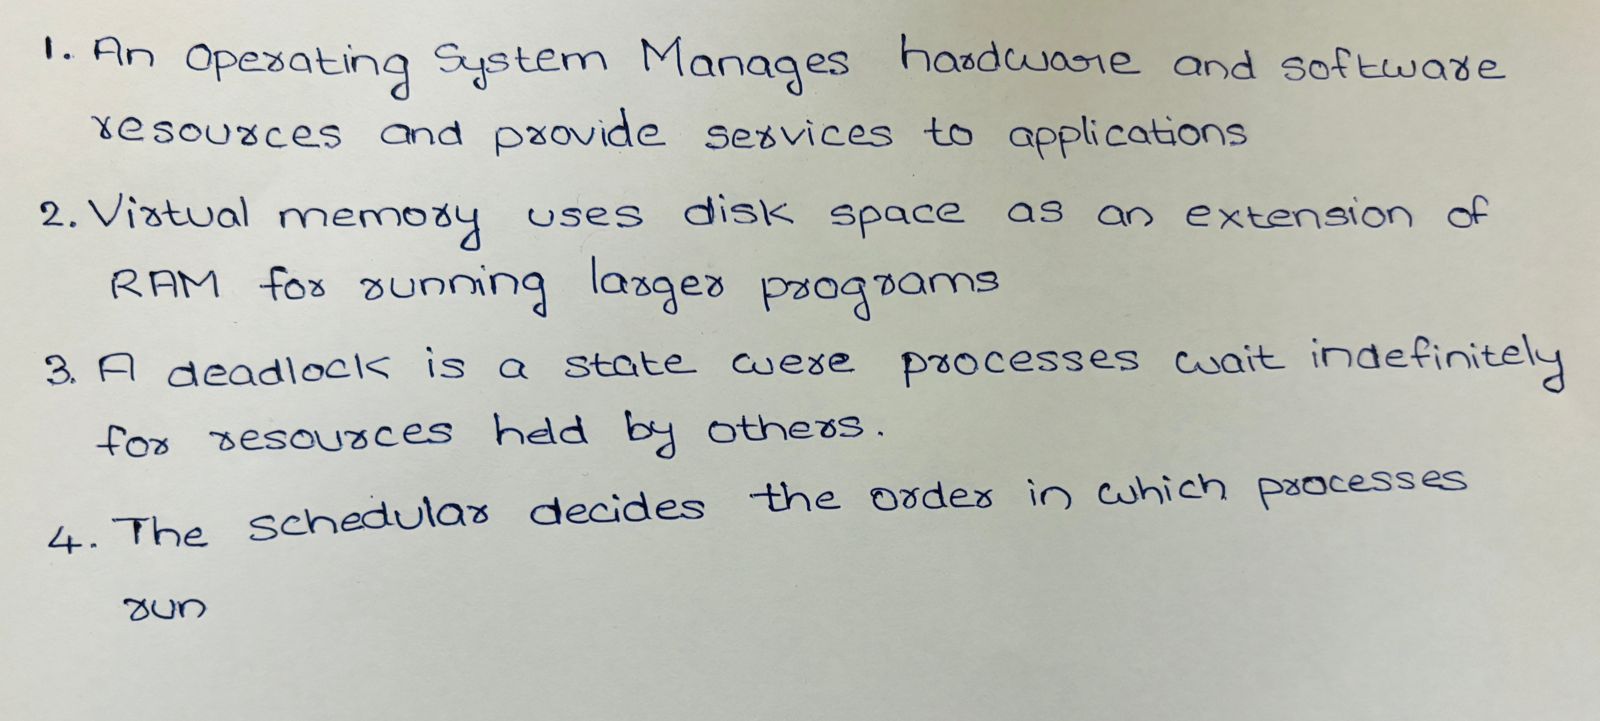 1. An Operating System Manages hardware and software
resources and provide services to applications
2. Virtual memory uses disk space as an extension of
RAM for running larger programs
3. A deadlock is a state were processes wait indefinitely
for resources held by others.
4. The schedular decides the order in which processes
run